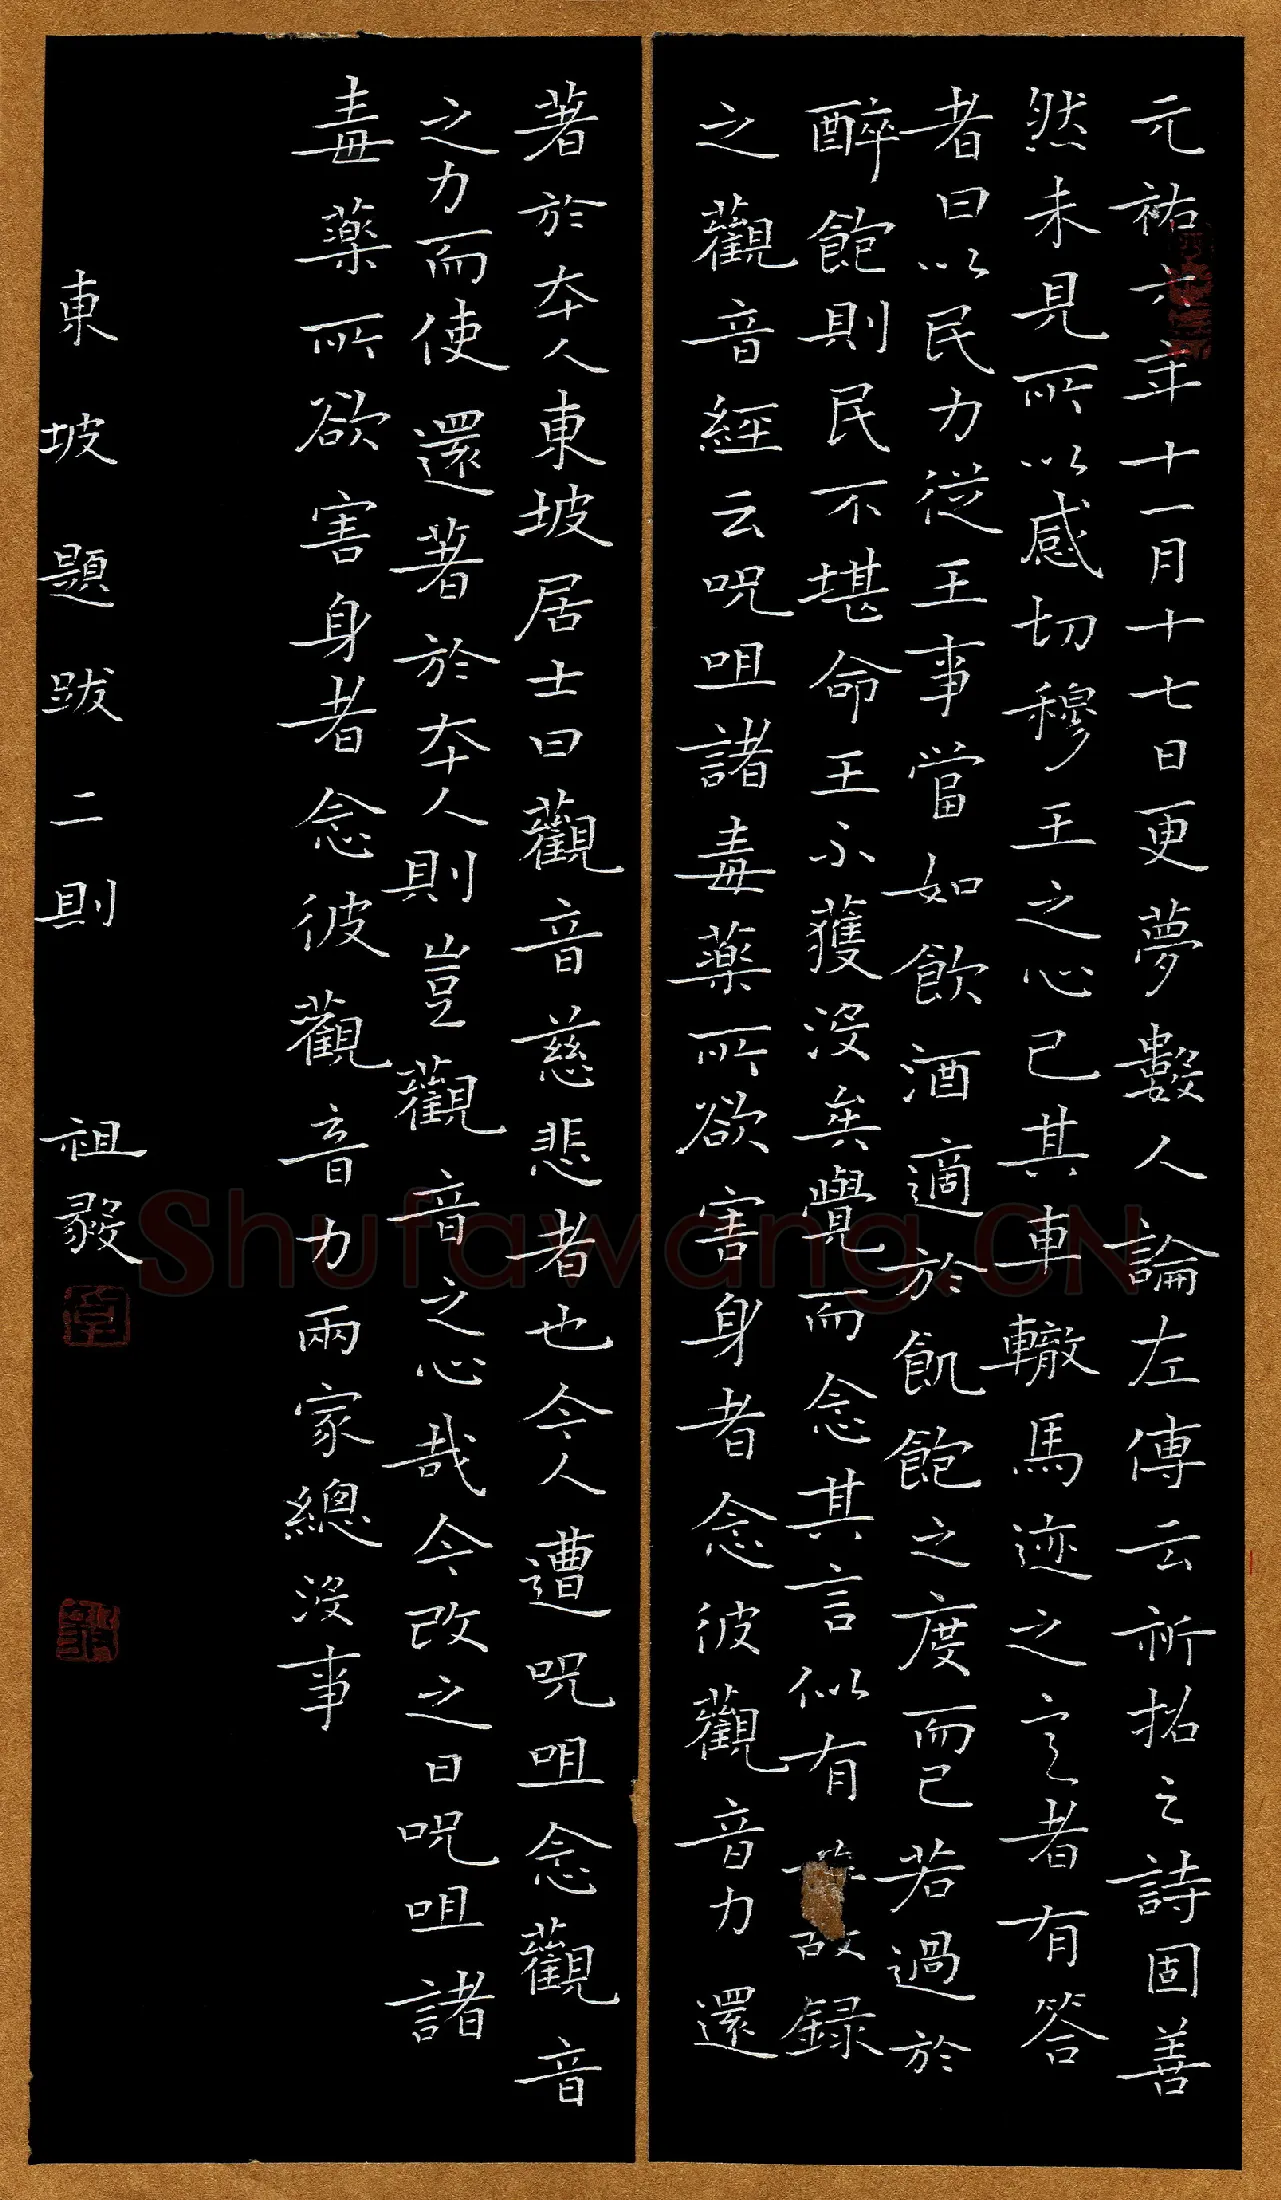 元祐六年十一月十七日更夢數人論左傳云祈招之詩固善
然未見所以感切穆王之心已其車轍馬迹之言者有答
者曰以民力從王事當如飲酒適於飢飽之度而已若過於
醉飽則民不堪命王不獲沒矣覺而念其言似有故録
之觀音經云呪咀諸毒藥所欲害身者念彼觀音力還
著於本人東坡居士曰觀音慈悲者也今人遭呪咀念觀音
之力而使還著於本人則豈觀音之心哉今改之曰呪咀諸
毒藥所欲害身者念彼觀音力兩家總沒事
東坡題跋二則 祖毅
Shufawang.CN